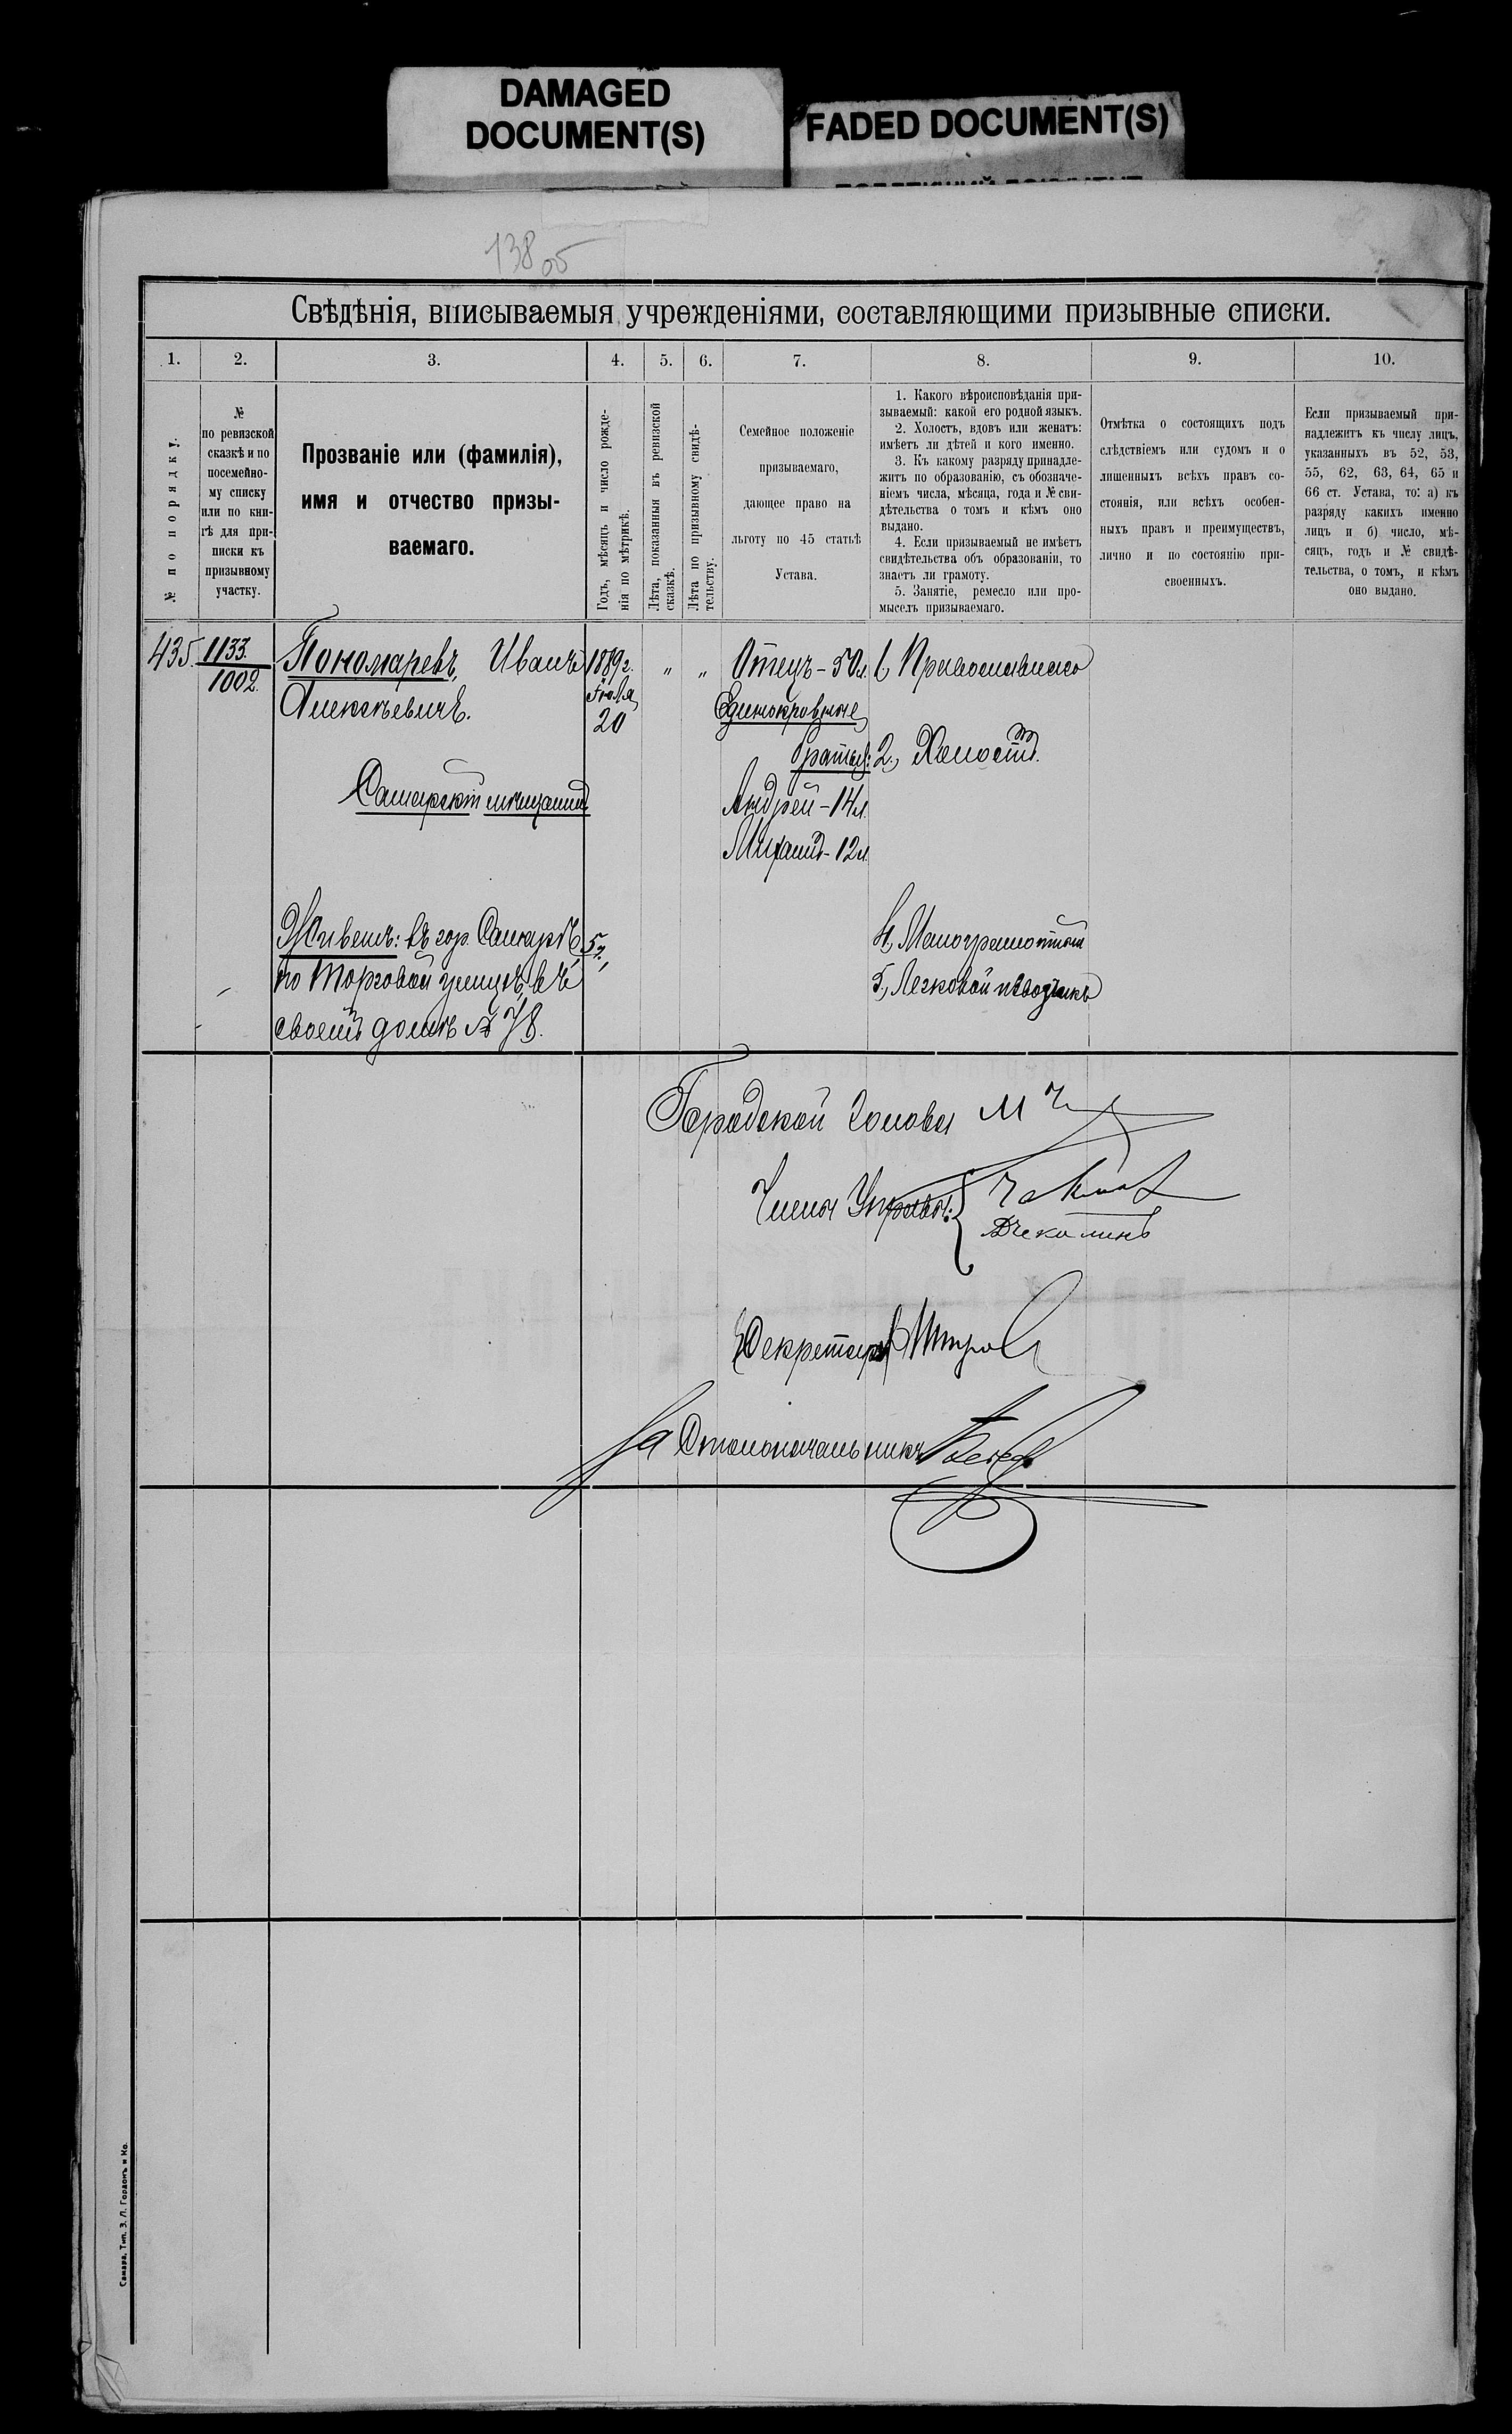 DAMAGED
DOCUMENT(S)
FADED DOCUMENT(S)
138 об
Свѣдѣнія, вписываемыя учрежденіями, составляющими призывные списки.
1.
2.
3.
4.
5.
6.
7.
8.
9.
10.
№ по порядку.
№
по ревизской
сказкѣ и по
посемейно-
му списку
или по кни-
гѣ для при-
писки къ
призывному
участку.
Прозваніе или (фамилія),
имя и отчество призы-
ваемаго.
Годъ, мѣсяцъ и число рожде-
нія по мѣтрикѣ.
Лѣта, показанныя въ ревизской
сказкѣ.
Лѣта по призывному свидѣ-
тельству.
Семейное положеніе
призываемаго,
дающее право на
льготу по 45 статьѣ
Устава.
1. Какого вѣроисповѣданія при-
зываемый: какой его родной языкъ.
2. Холостъ, вдовъ или женатъ:
имѣетъ ли дѣтей и кого именно.
3. Къ какому разряду принадле-
житъ по образованію, съ обозначе-
ніемъ числа, мѣсяца, года и № сви-
дѣтельства о томъ и кѣмъ оно
выдано.
4. Если призываемый не имѣетъ
свидѣтельства объ образованіи, то
знаетъ ли грамоту.
5. Занятіе, ремесло или про-
мыселъ призываемаго.
Отмѣтка о состоящихъ подъ
слѣдствіемъ или судомъ и о
лишенныхъ всѣхъ правъ со-
стоянія, или всѣхъ особен-
ныхъ правъ и преимуществъ,
лично и по состоянію при-
своенныхъ.
Если призываемый при-
надлежитъ къ числу лицъ,
указанныхъ въ 52, 53,
55, 62, 63, 64, 65 и
66 ст. Устава, то: а) къ
разряду какихъ именно
лицъ и б) число, мѣ-
сяцъ, годъ и № свидѣ-
тельства, о томъ, и кѣмъ
оно выдано.
435.
1133.
1002.
Пономаревъ, Иванъ
Алексѣевичъ.
Самарскій мѣщанинъ
Живетъ: въ гор. Самарѣ,
по Торговой улицѣ, въ
своемъ домѣ № 78.
1889 г.
Іюля
20
5
"
"
Отецъ - 50 л.
Единокровные
братья:
Андрей - 14 л.
Михаилъ - 12 л.
1, Православнаго
2, Холостъ.
4, Малограмотный
5, Легковой извозчикъ
Городской Голова
Члены Управы:
Дчекалинъ
Секретарь
За Столоначальника
Самара, Тип. З. Л. Гордонъ и Ко.